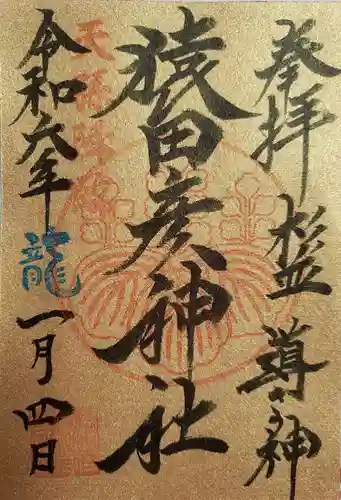 奉拝 松益 導の神
猿田彦神社
令和六年 龍 一月四日